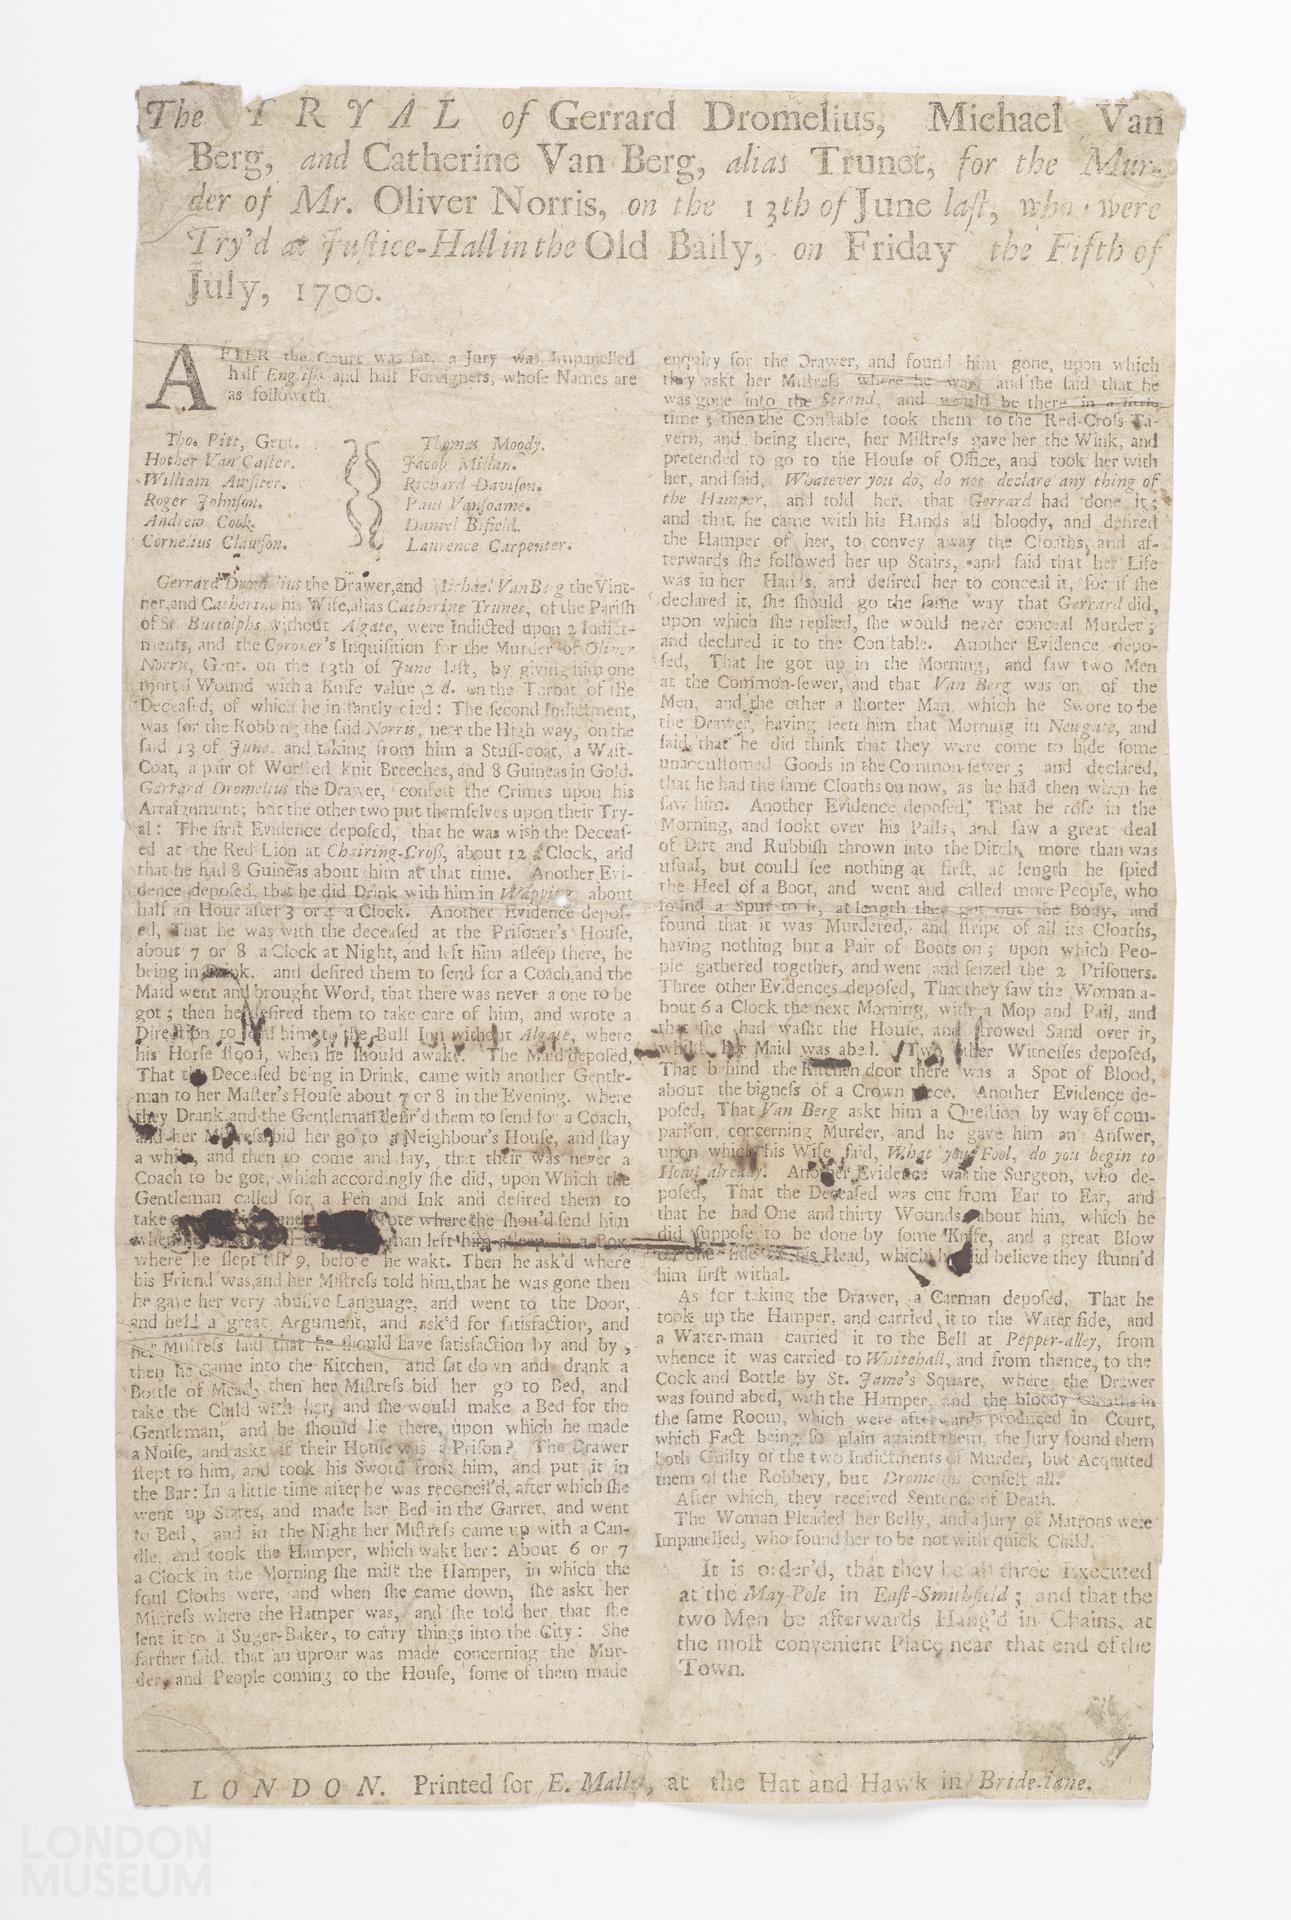 The TRYAL of Gerrard Dromelius, Michael Van
Berg, and Catherine Van Berg, alias Trunet, for the Mur-
der of Mr. Oliver Norris, on the 13th of June laſt, who were
Try'd at Juſtice-Hall in the Old Baily, on Friday the Fifth of
July, 1700.
AFTER the Court was ſat, a Jury was Impanelled
half Engliſh and half Foreigners, whoſe Names are
as followeth
Tho. Pitt, Gent.
Hother Van Caſter.
William Awſiter.
Roger Johnſon.
Andrew Cook.
Cornelius Clawſon.
Thomas Moody.
Jacob Miſſan.
Richard Daviſon.
Paul Vanſoame.
Daniel Bifield.
Laurence Carpenter.
Gerrard the Drawer, and Michael Van Berg the Vint-
ner, and Catherine his Wife, alias Catherine Trunet, of the Pariſh
of St. Buttolphs without Algate, were Indicted upon 2 Indict-
ments, and the Coroner's Inquiſition for the Murder of Oliver
Norris, Gent. on the 13th of June laſt, by giving him one
mortal Wound with a Knife value 2 d. on the Throat of the
Deceaſed, of which he inſtantly died: The ſecond Indictment,
was for the Robbing the ſaid Norris, near the High way, on the
ſaid 13 of June. and taking from him a Stuff-coat, a Waſt-
Coat, a pair of Worſted knit Breeches, and 8 Guineas in Gold.
Gerrard Dromelius the Drawer, confeſt the Crimes upon his
Arraignment; but the other two put themſelves upon their Try-
al: The firſt Evidence depoſed, that he was with the Deceaſ-
ed at the Red Lion at Chairing-Croſs, about 12 a Clock, and
that he had 8 Guineas about him at that time. Another Evi-
dence depoſed, that he did Drink with him in Wapping about
half an Hour after 3 or 4 a Clock. Another Evidence depoſ-
ed, That he was with the deceaſed at the Priſoner's Houſe,
about 7 or 8 a Clock at Night, and left him aſleep there, he
being in Drink, and deſired them to ſend for a Coach, and the
Maid went and brought Word, that there was never a one to be
got; then he deſired them to take care of him, and wrote a
Direction to ſend him to the Bull Inn without Algate, where
his Horſe ſtood, when he ſhould awake. The Maid depoſed,
That the Deceaſed being in Drink, came with another Gentle-
man to her Maſter's Houſe about 7 or 8 in the Evening. where
they Drank, and the Gentleman deſir'd them to ſend for a Coach,
and her Miſtreſs bid her go to a Neighbour's Houſe, and ſtay
a while, and then to come and ſay, that their was never a
Coach to be got, which accordingly ſhe did, upon Which the
Gentleman called for a Pen and Ink and deſired them to
take Note where the ſhou'd ſend him
when man left him aſleep in a Box,
where he ſlept till 9, before he wakt. Then he ask'd where
his Friend was, and her Miſtreſs told him, that he was gone then
he gave her very abuſive Language, and went to the Door,
and held a great Argument, and ask'd for ſatisfaction, and
her Miſtreſs ſaid that he ſhould have ſatisfaction by and by,
then he came into the Kitchen, and ſat down and drank a
Bottle of Mead, then her Miſtreſs bid her go to Bed, and
take the Child with her, and ſhe would make a Bed for the
Gentleman, and he ſhould lie there, upon which he made
a Noiſe, and askt if their Houſe was a Priſon? The Drawer
ſtept to him, and took his Sword from him, and put it in
the Bar: In a little time after he was reconcil'd, after which ſhe
went up Stares, and made her Bed in the Garret, and went
to Bed, and in the Night her Miſtreſs came up with a Can-
dle, and took the Hamper, which wakt her: About 6 or 7
a Clock in the Morning ſhe miſt the Hamper, in which the
foul Cloths were, and when ſhe came down, ſhe askt her
Miſtreſs where the Hamper was, and ſhe told her that ſhe
ſent it to a Suger-Baker, to carry things into the City: She
farther ſaid, that an uproar was made concerning the Mur-
der, and People coming to the Houſe, ſome of them made
enquiry for the Drawer, and found him gone, upon which
they askt her Miſtreſs where he was, and ſhe ſaid that he
was gone into the Strand, and would be there in a little
time; then the Conſtable took them to the Red-Croſs Ta-
vern, and being there, her Miſtreſs gave her the Wink, and
pretended to go to the Houſe of Office, and took her with
her, and ſaid, Whatever you do, do not declare any thing of
the Hamper, and told her, that Gerrard had done it;
and that he came with his Hands all bloody, and deſired
the Hamper of her, to convey away the Cloaths, and af-
terwards ſhe followed her up Stairs, and ſaid that her Life
was in her Hands, and deſired her to conceal it, for if ſhe
declared it, ſhe ſhould go the ſame way that Gerrard did,
upon which ſhe replied, ſhe would never conceal Murder;
and declared it to the Conſtable. Another Evidence depo-
ſed, That he got up in the Morning, and ſaw two Men
at the Common-ſewer, and that Van Berg was on of the
Men, and the other a ſhorter Man, which he Swore to be
the Drawer, having ſeen him that Morning in Newgate, and
ſaid that he did think that they were come to hide ſome
unaccuſtomed Goods in the Common-ſewer; and declared,
that he had the ſame Cloaths on now, as he had then when he
ſaw him. Another Evidence depoſed, That he roſe in the
Morning, and lookt over his Pails, and ſaw a great deal
of Dirt and Rubbiſh thrown into the Ditch, more than was
uſual, but could ſee nothing at firſt, at length he ſpied
the Heel of a Boot, and went and called more People, who
found a Spur to it, at length they got out the Body, and
found that it was Murdered, and ſtript of all its Cloaths,
having nothing but a Pair of Boots on; upon which Peo-
ple gathered together, and went and ſeized the 2 Priſoners.
Three other Evidences depoſed, That they ſaw the Woman a-
bout 6 a Clock the next Morning, with a Mop and Pail, and
that ſhe had waſht the Houſe, and ſtrowed Sand over it,
whilſt her Maid was abed. Two other Witneſſes depoſed,
That behind the Kitchen door there was a Spot of Blood,
about the bigneſs of a Crown piece. Another Evidence de-
poſed, That Van Berg askt him a Queſtion by way of com-
pariſon, concerning Murder, and he gave him an Anſwer,
upon which his Wife ſaid, What you Fool, do you begin to
Howl already. Another Evidence was the Surgeon, who de-
poſed, That the Deceaſed was cut from Ear to Ear, and
that he had One and thirty Wounds about him, which he
did ſuppoſe to be done by ſome Knife, and a great Blow
on one ſide of his Head, which he did believe they ſtunn'd
him firſt withal.
As for taking the Drawer, a Carman depoſed, That he
took up the Hamper, and carried it to the Water ſide, and
a Water-man carried it to the Bell at Pepper-alley, from
whence it was carried to Whitehall, and from thence, to the
Cock and Bottle by St. Jame's Square, where the Drawer
was found abed, with the Hamper, and the bloody Cloaths in
the ſame Room, which were afterwards produced in Court,
which Fact being ſo plain againſt them, the Jury found them
both Guilty of the two Indictments of Murder, but Acquitted
them of the Robbery, but Dromelius confeſt all.
After which, they received Sentence of Death.
The Woman Pleaded her Belly, and a Jury of Matrons were
Impanelled, who found her to be not with quick Child.
It is order'd, that they be all three Executed
at the May-Pole in Eaſt-Smithfield; and that the
two Men be afterwards Hang'd in Chains, at
the moſt convenient Place near that end of the
Town.
LONDON. Printed for E. Mallet, at the Hat and Hawk in Bride-lane.
LONDON
MUSEUM